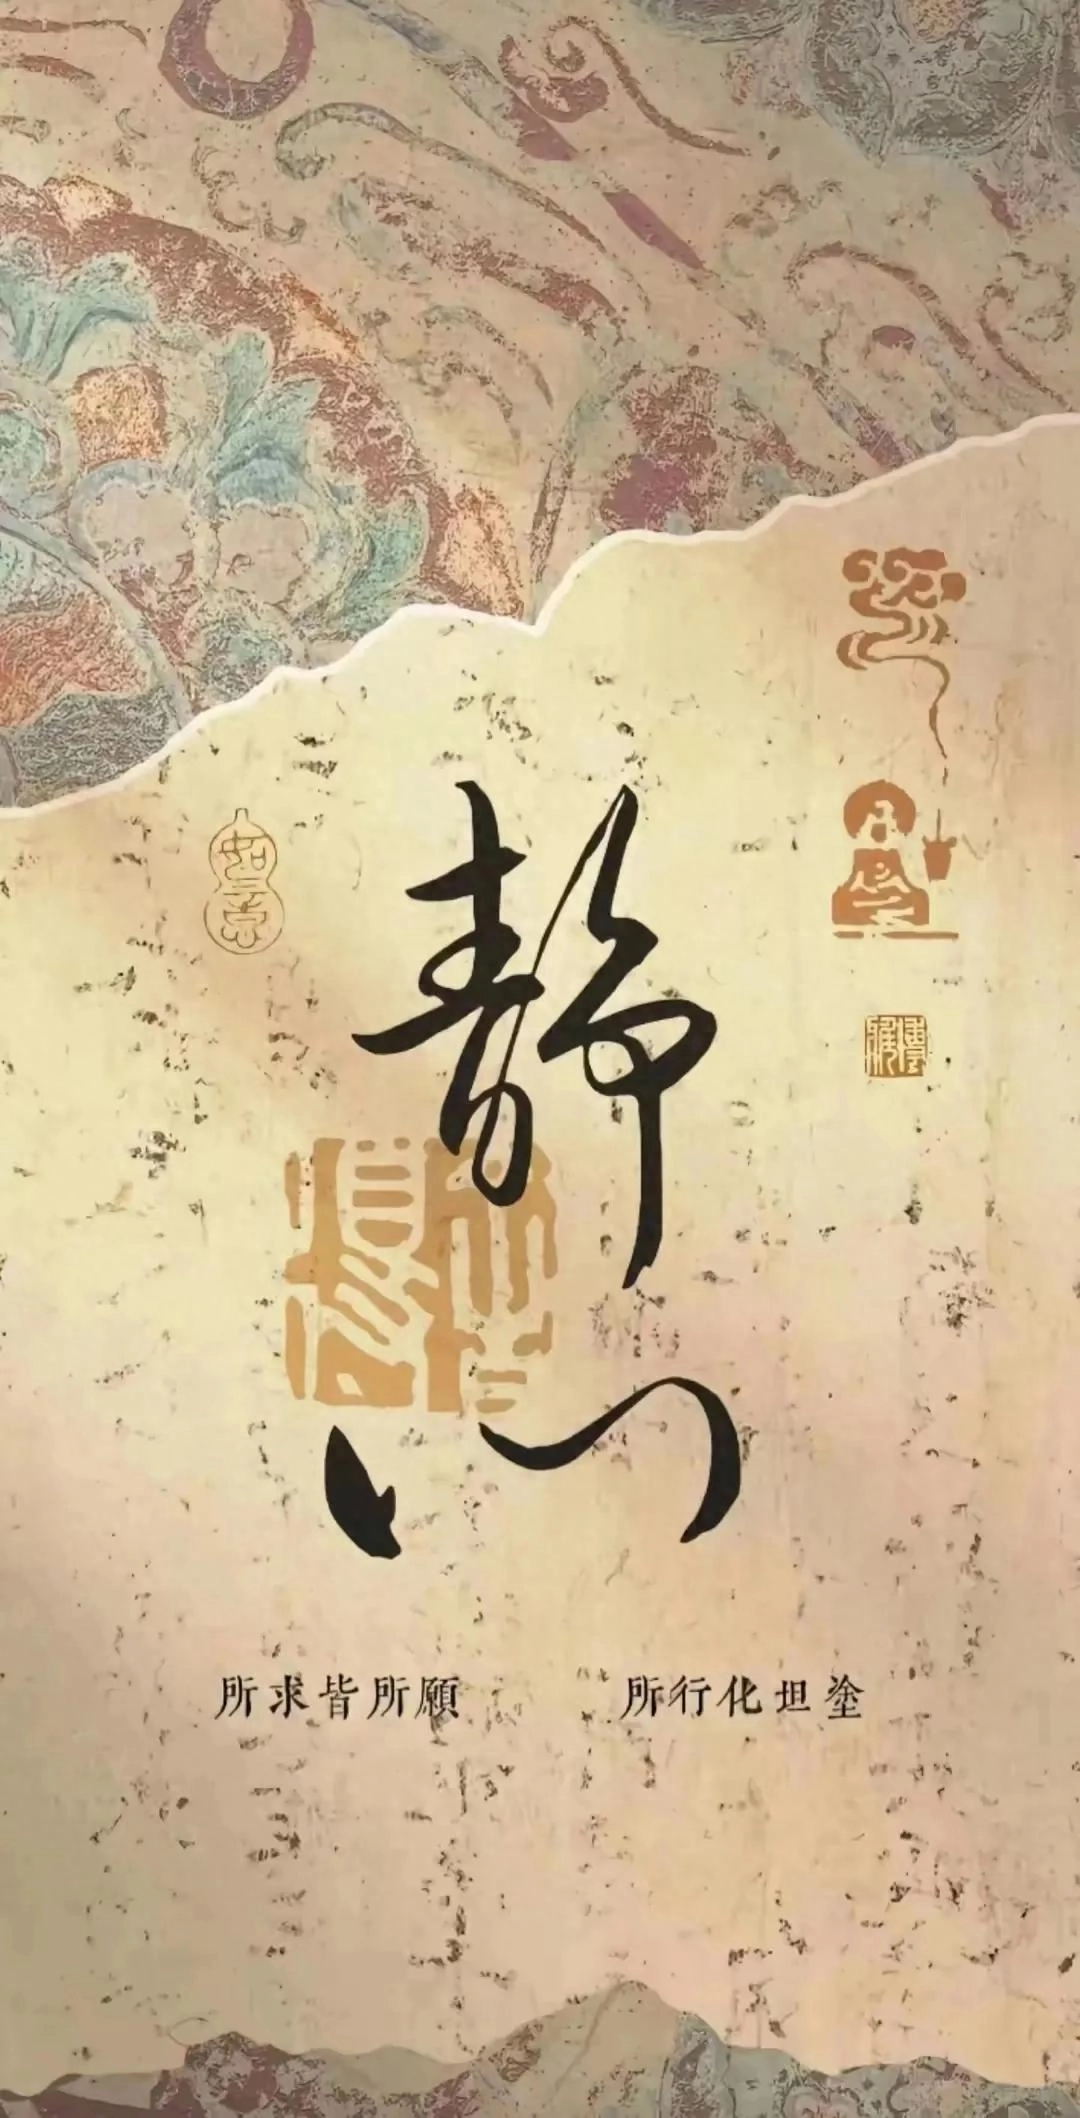 静心
所求皆所願
所行化坦塗